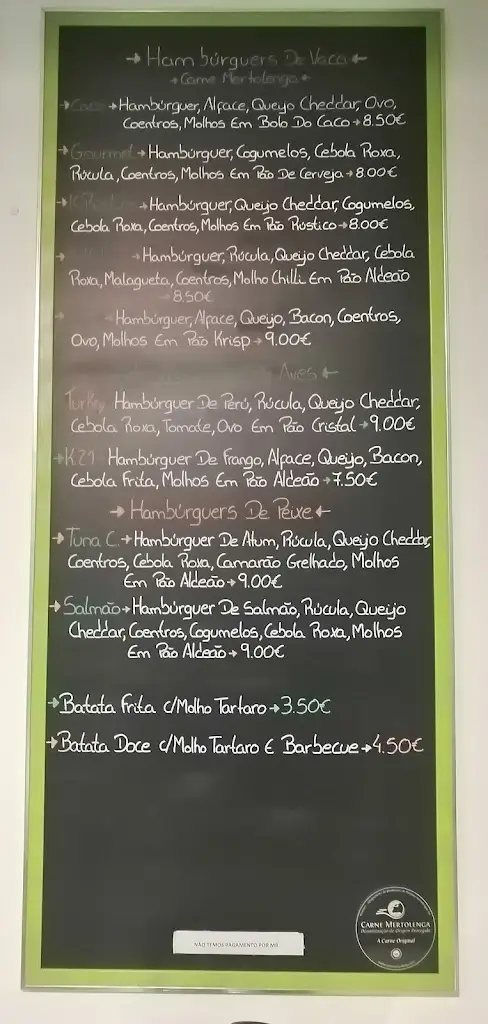 →Hambúrguers De Vaca←
→Carne Mertolenga←
→Caco→Hambúrguer, Alface, Queijo Cheddar, Ovo,
Coentros, Molhos Em Bolo Do Caco→8.50€
→Gourmet→Hambúrguer, Cogumelos, Cebola Roxa,
Rúcula, Coentros, Molhos Em Pão De Cerveja→8.00€
→Hambúrguer, Queijo Cheddar, Cogumelos,
Cebola Roxa, Coentros, Molhos Em Pão Rústico→8.00€
→Hambúrguer, Rúcula, Queijo Cheddar, Cebola
Roxa, Malagueta, Coentros, Molho Chilli Em Pão Aldeão
→8.50€
→Hambúrguer, Alface, Queijo, Bacon, Coentros,
Ovo, Molhos Em Pão Krisp→9.00€
Aves←
Turkey Hambúrguer De Perú, Rúcula, Queijo Cheddar,
Cebola Roxa, Tomate, Ovo Em Pão Cristal→9.00€
→K.21→Hambúrguer De Frango, Alface, Queijo, Bacon,
Cebola Frita, Molhos Em Pão Aldeão→7.50€
→Hambúrguers De Peixe←
→Tuna C.→Hambúrguer De Atum, Rúcula, Queijo Cheddar,
Coentros, Cebola Roxa, Camarão Grelhado, Molhos
Em Pão Aldeão→9.00€
→Salmão→Hambúrguer De Salmão, Rúcula, Queijo
Cheddar, Coentros, Cogumelos, Cebola Roxa, Molhos
Em Pão Aldeão→9.00€
→Batata Frita c/Molho Tartaro→3.50€
→Batata Doce c/Molho Tartaro E Barbecue→4.50€
CARNE MERTOLENGA
Denominação de Origem Protegida
A Carne Original
NÃO TEMOS PAGAMENTO POR MB